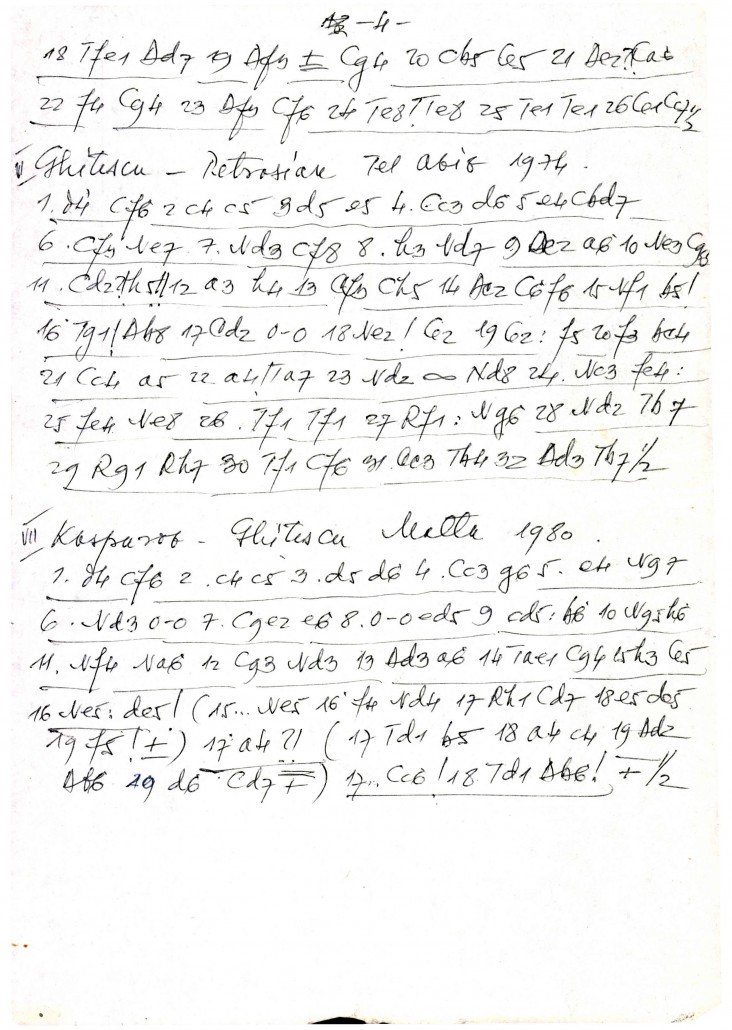 -4-
18 Tfe1 Ad7 19 Af4 ± Cg4 20 Cb5 Ce5 21 Ae2? Ca6
22 f4 Cg4 23 Af3 Cf6 24 Te8! Te8 25 Te1 Te1 26 Ce1 Cc7 1/2
Ghitescu - Petrosian Tel Abib 1974.
1. d4 Cf6 2 c4 c5 3 d5 e5 4. Cc3 d6 5 e4 Cbd7
6. Cf3 Ne7 7. Nd3 Cf8 8. h3 Nd7 9 Ae2 a6 10 Ne3 Cg6
11. Cd2?! h5!! 12 a3 h4 13 Cf3 Ch5 14 Ac2 Cf6 15 Nf1 b5!
16 Tg1! Ab8 17 Cd2 0-0 18 Ne2! Ce2 19 Ce2: f5 20 f3 bc4
21 Cc4 a5 22 a4! Ta7 23 Nd2 ∞ Nd8 24. Nc3 fe4:
25 fe4 Ne8 26. Tf1 Tf1 27 Rf1: Ng6 28 Nd2 Tb7
29 Rg1 Rh7 30 Tf1 Cf6 31. Cc3 Tb4 32 Ad3 Tb7 1/2
VII Kasparov - Ghitescu Malta 1980.
1. d4 Cf6 2. c4 c5 3. d5 d6 4. Cc3 g6 5. e4 Ng7
6. Nd3 0-0 7. Cge2 e6 8. 0-0 ed5 9 cd5: b6 10 Ng5 h6
11. Nf4 Na6 12 Cg3 Nd3 13 Ad3 a6 14 Tae1 Cg4 15 h3 Ce5
16 Ne5: de5! (15... Ne5 16 f4 Nd4 17 Rh1 Cd7 18 e5 de5
19 f5! ±) 17 a4?! (17 Td1 b5 18 a4 c4 19 Ad2
Ab6 20 d6 Cd7 ∓) 17... Cc6! 18 Td1 Ab6! ∓ 1/2